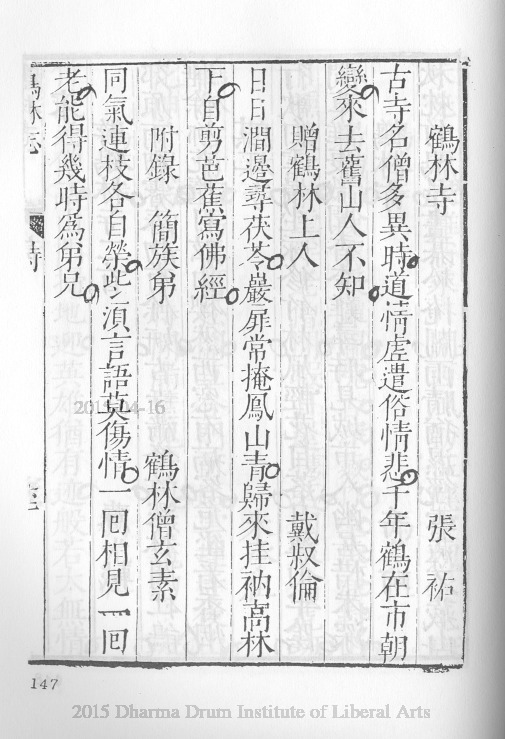 鶴林寺 張祐
古寺名僧多異時道情虛遣俗情悲千年鶴在市朝
變來去舊山人不知
贈鶴林上人 戴叔倫
日日澗邊尋茯苓巖扉常掩鳳山青歸來挂衲高林
下自剪芭蕉寫佛經
附錄 簡族弟 鶴林僧玄素
同氣連枝各自榮些些須言語莫傷情一回相見一回
老能得幾時為弟兄
鶴林志 詩
147
2015-04-16
2015 Dharma Drum Institute of Liberal Arts